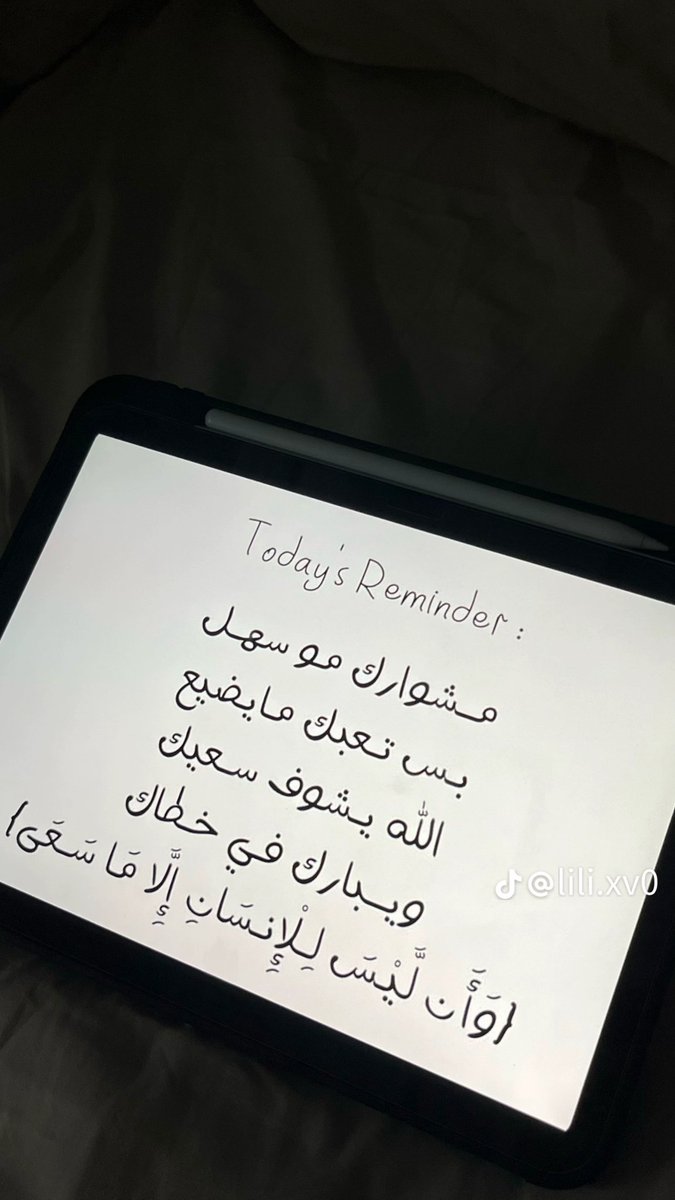 Today's Reminder:
مشوارك مو سهل
بس تعبك مايضيع
الله يشوف سعيك
ويبارك في خطاك
{وَأَن لَّيْسَ لِلْإِنسَانِ إِلَّا مَا سَعَى}
@lili.xv0